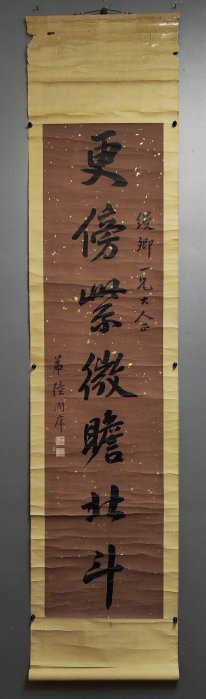 更傍紫微瞻北斗
綬卿一兄大人正
弟陸潤庠